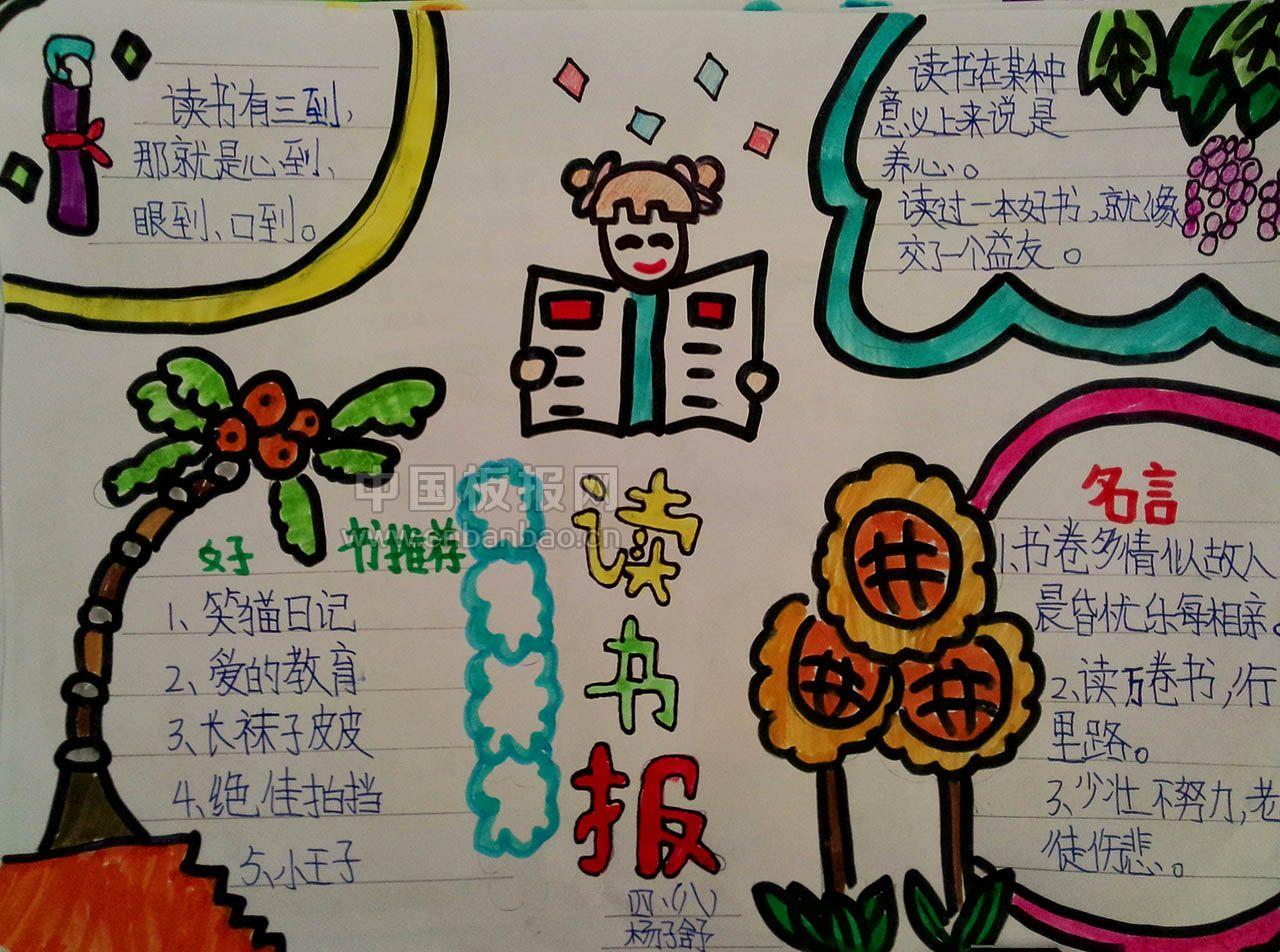 读书有三到，
那就是心到、
眼到、口到。
读书在某种
意义上来说是
养心。
读过一本好书，就像
交了一个益友。
中国板报网
www.cnbanbao.cn
好 书推荐
1、笑猫日记
2、爱的教育
3、长袜子皮皮
4、绝佳拍挡
5、小王子
读
书
报
四、（八）
杨子舒
名言
1.书卷多情似故人
晨昏忧乐每相亲。
2、读万卷书，行
里路。
3、少壮不努力，老
徒伤悲。